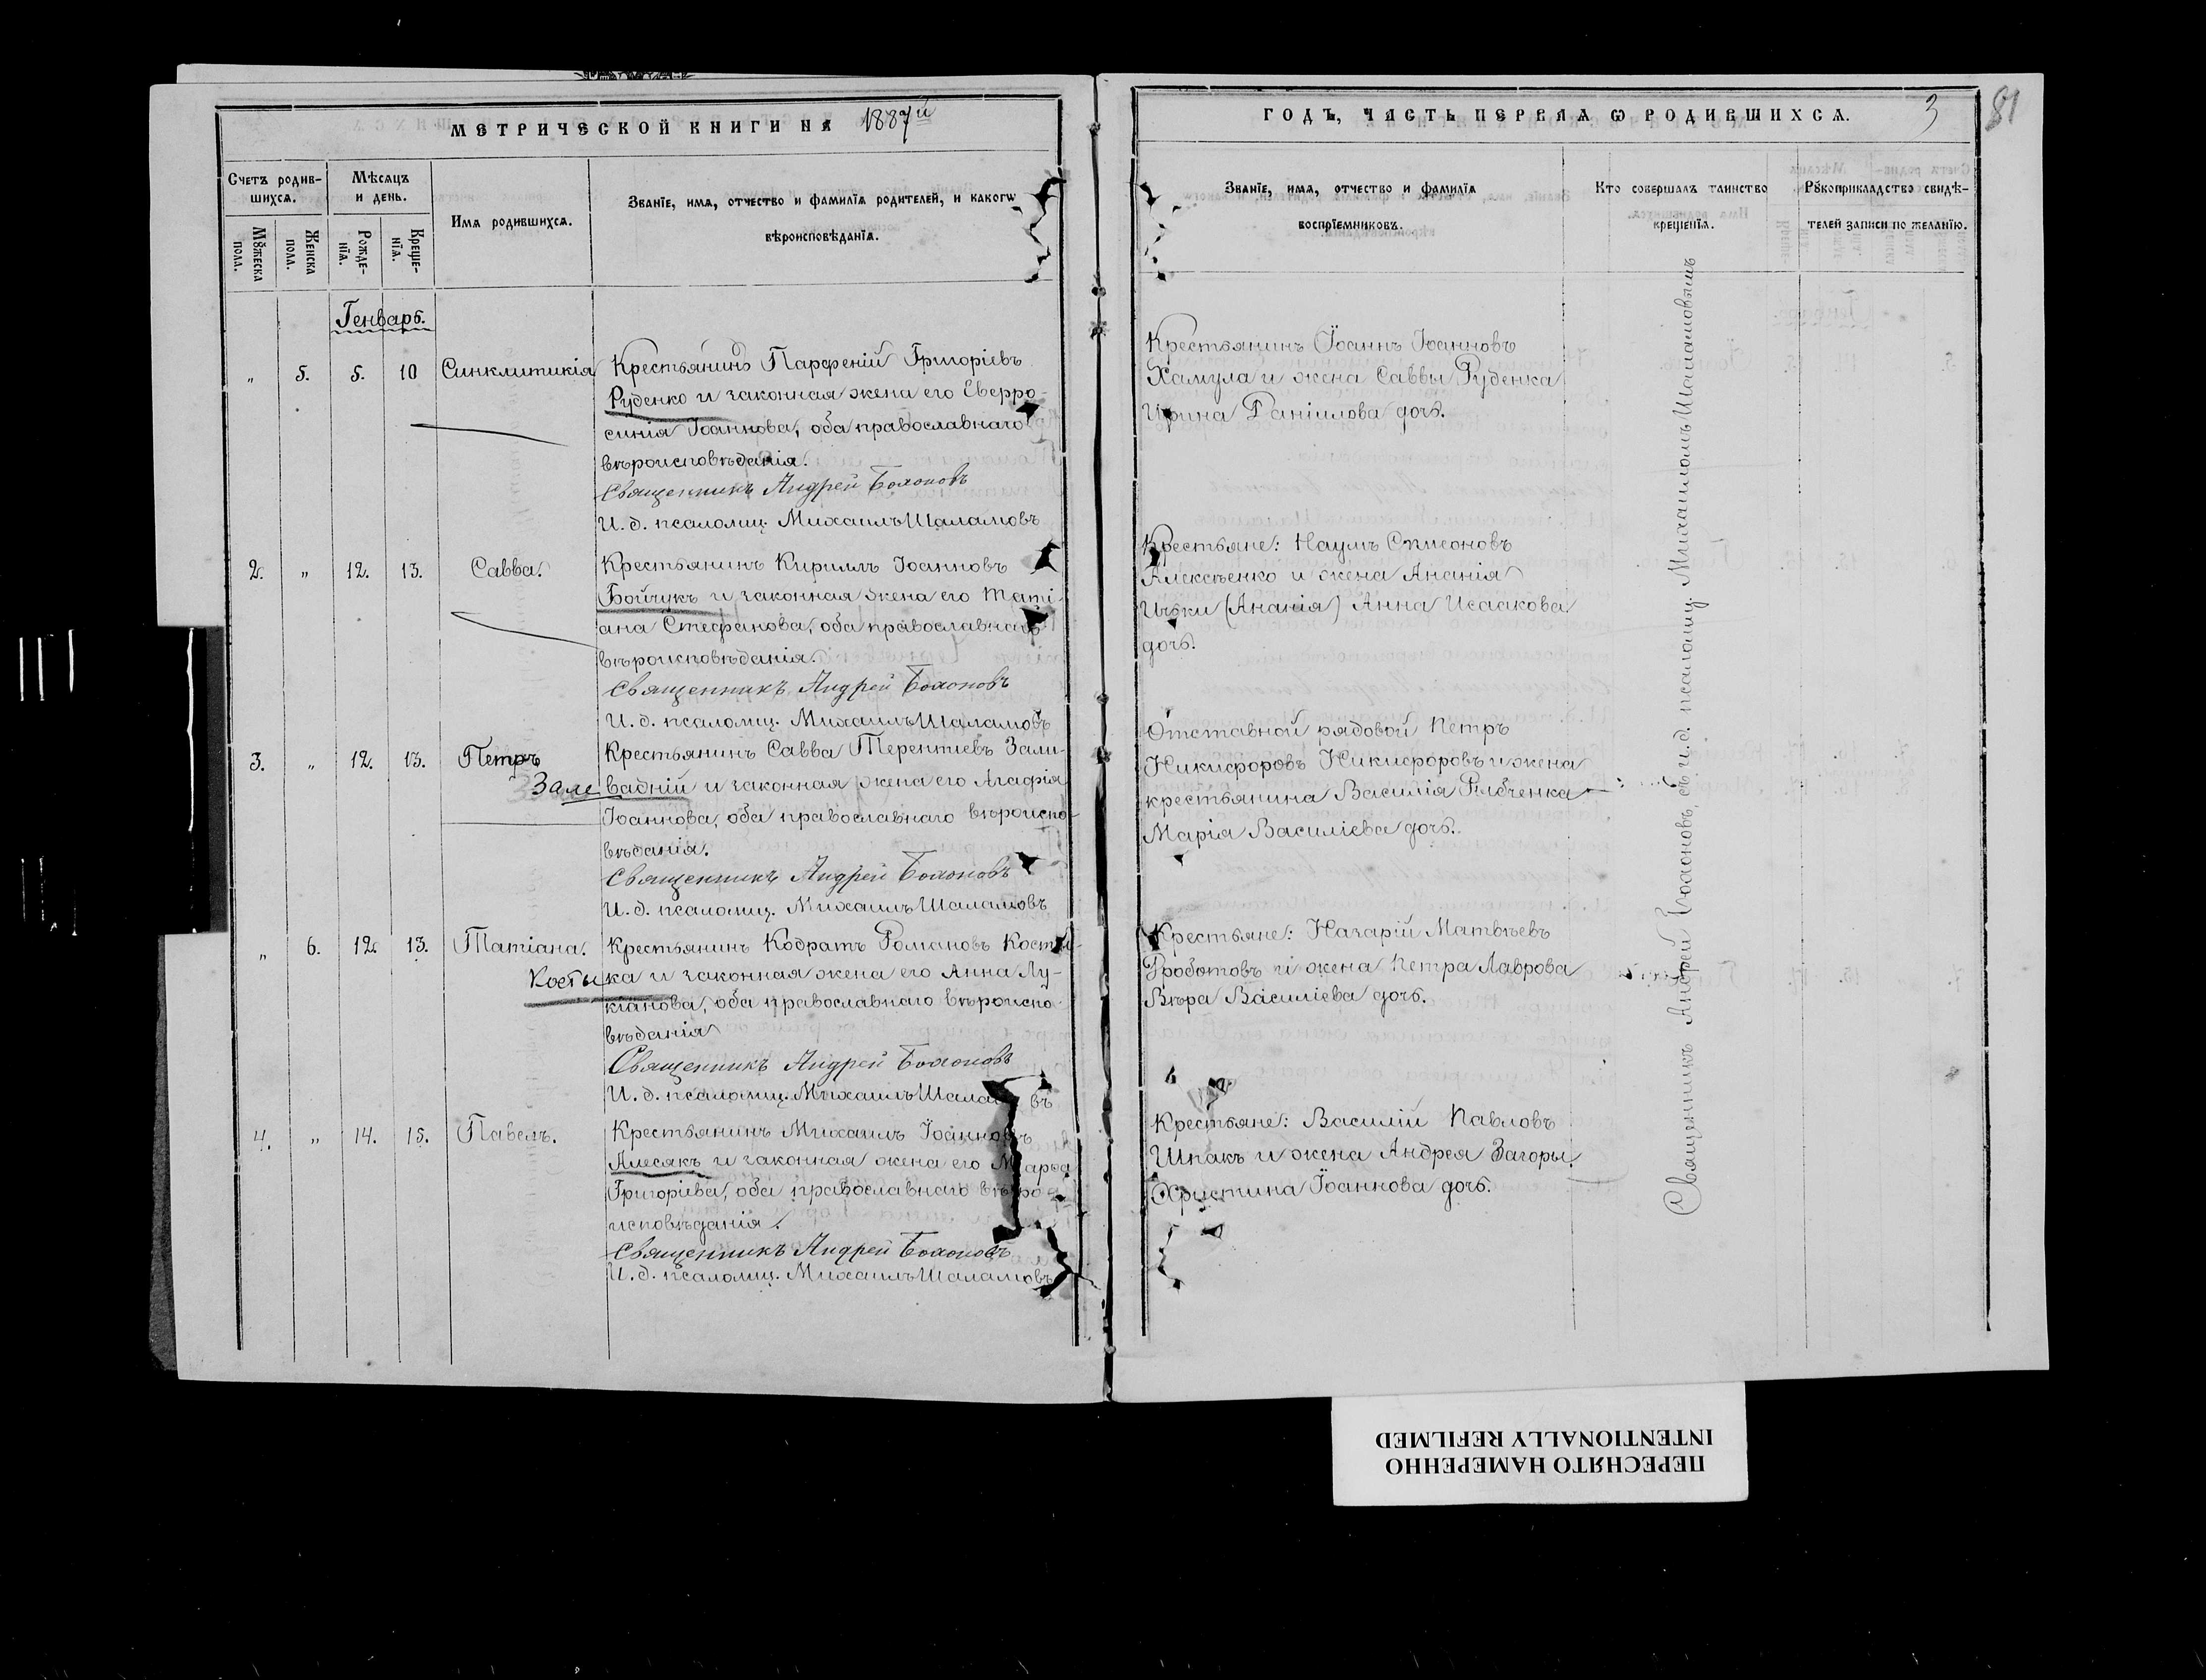 МЕТРИЧЕСКОЙ КНИГИ НА 1887й
Счетъ родив-
шихся.
Мѣсяцъ
и день.
Имя родившихся.
Званїе, имя, отчество и фамилїя родителей, и какогѡ
вѣроисповѣданїя.
Мꙋжеска
пола.
Женска
пола.
Рожде-
нїя.
Креще-
нїя.
Генварь.
„ 5. 5. 10 Синклитикія
Крестьянинъ Парфеній Григоріевъ
Руденко и законная жена его Еверро-
синія Іоаннова, оба православнаго
вѣроисповѣданія.
Священникъ Андрей
И. д. псаломщ. Михаилъ Шаламовъ
2. „ 12. 13. Савва.
Крестьянинъ Кириллъ Іоанновъ
Бойчукъ и законная жена его Тати-
ана Стефанова, оба православнаго
вѣроисповѣданія.
Священникъ Андрей
И. д. псаломщ. Михаилъ Шаламовъ
3. „ 12. 13. Петръ
Крестьянинъ Савва Терентіевъ Зали-
Зале вадній и законная жена его Агафія
Іоаннова, оба православнаго вѣроиспо-
вѣданія.
Священникъ Андрей
И. д. псаломщ. Михаилъ Шаламовъ
„ 6. 12. 13. Татіана.
Крестьянинъ Кодратъ Романовъ Косты-
Косты ка и законная жена его Анна Лу-
кіанова, оба православнаго вѣроиспо-
вѣданія
Священникъ Андрей
И. д. псаломщ. Михаилъ Шалам въ
4. „ 14. 15. Павелъ.
Крестьянинъ Михаилъ Іоанновъ
Алесякъ и законная жена его Марфа
Григоріева, оба православнаго вѣро-
исповѣданія.
Священникъ Андрей
И. д. псаломщ. Михаилъ Шаламовъ
ГОДЪ, ЧАСТЬ ПЕРВАЯ Ѡ РОДИВШИХСЯ.
3
81
Званїе, имя, отчество и фамилїя
воспрїемниковъ.
Кто совершалъ таинство
крещенїя.
Рꙋкоприкладство свидѣ-
телей записи по желанїю.
Крестьянинъ Іоаннъ Іоанновъ
Хамула и жена Саввы Руденка
Ирина Даніилова дочь.
Крестьяне: Наумъ Симеоновъ
Алексѣенко и жена Ананія
(Ананія) Анна Исаакова
дочь.
Отставной рядовой Петръ
Никифоровъ Никифоровъ и жена
крестьянина Василія Рябченка
Марія Василіева дочь.
Крестьяне: Назарій Матвѣевъ
Гроботовъ и жена Петра Лаврова
Вѣра Василіева дочь.
Крестьяне: Василій Павловъ
Шпакъ и жена Андрея Загоры
Христина Іоаннова дочь.
Священникъ Андрей съ и.д. псаломщ. Михаиломъ Шаламовымъ
ПЕРЕСНЯТО НАМЕРЕННО
INTENTIONALLY REFILMED